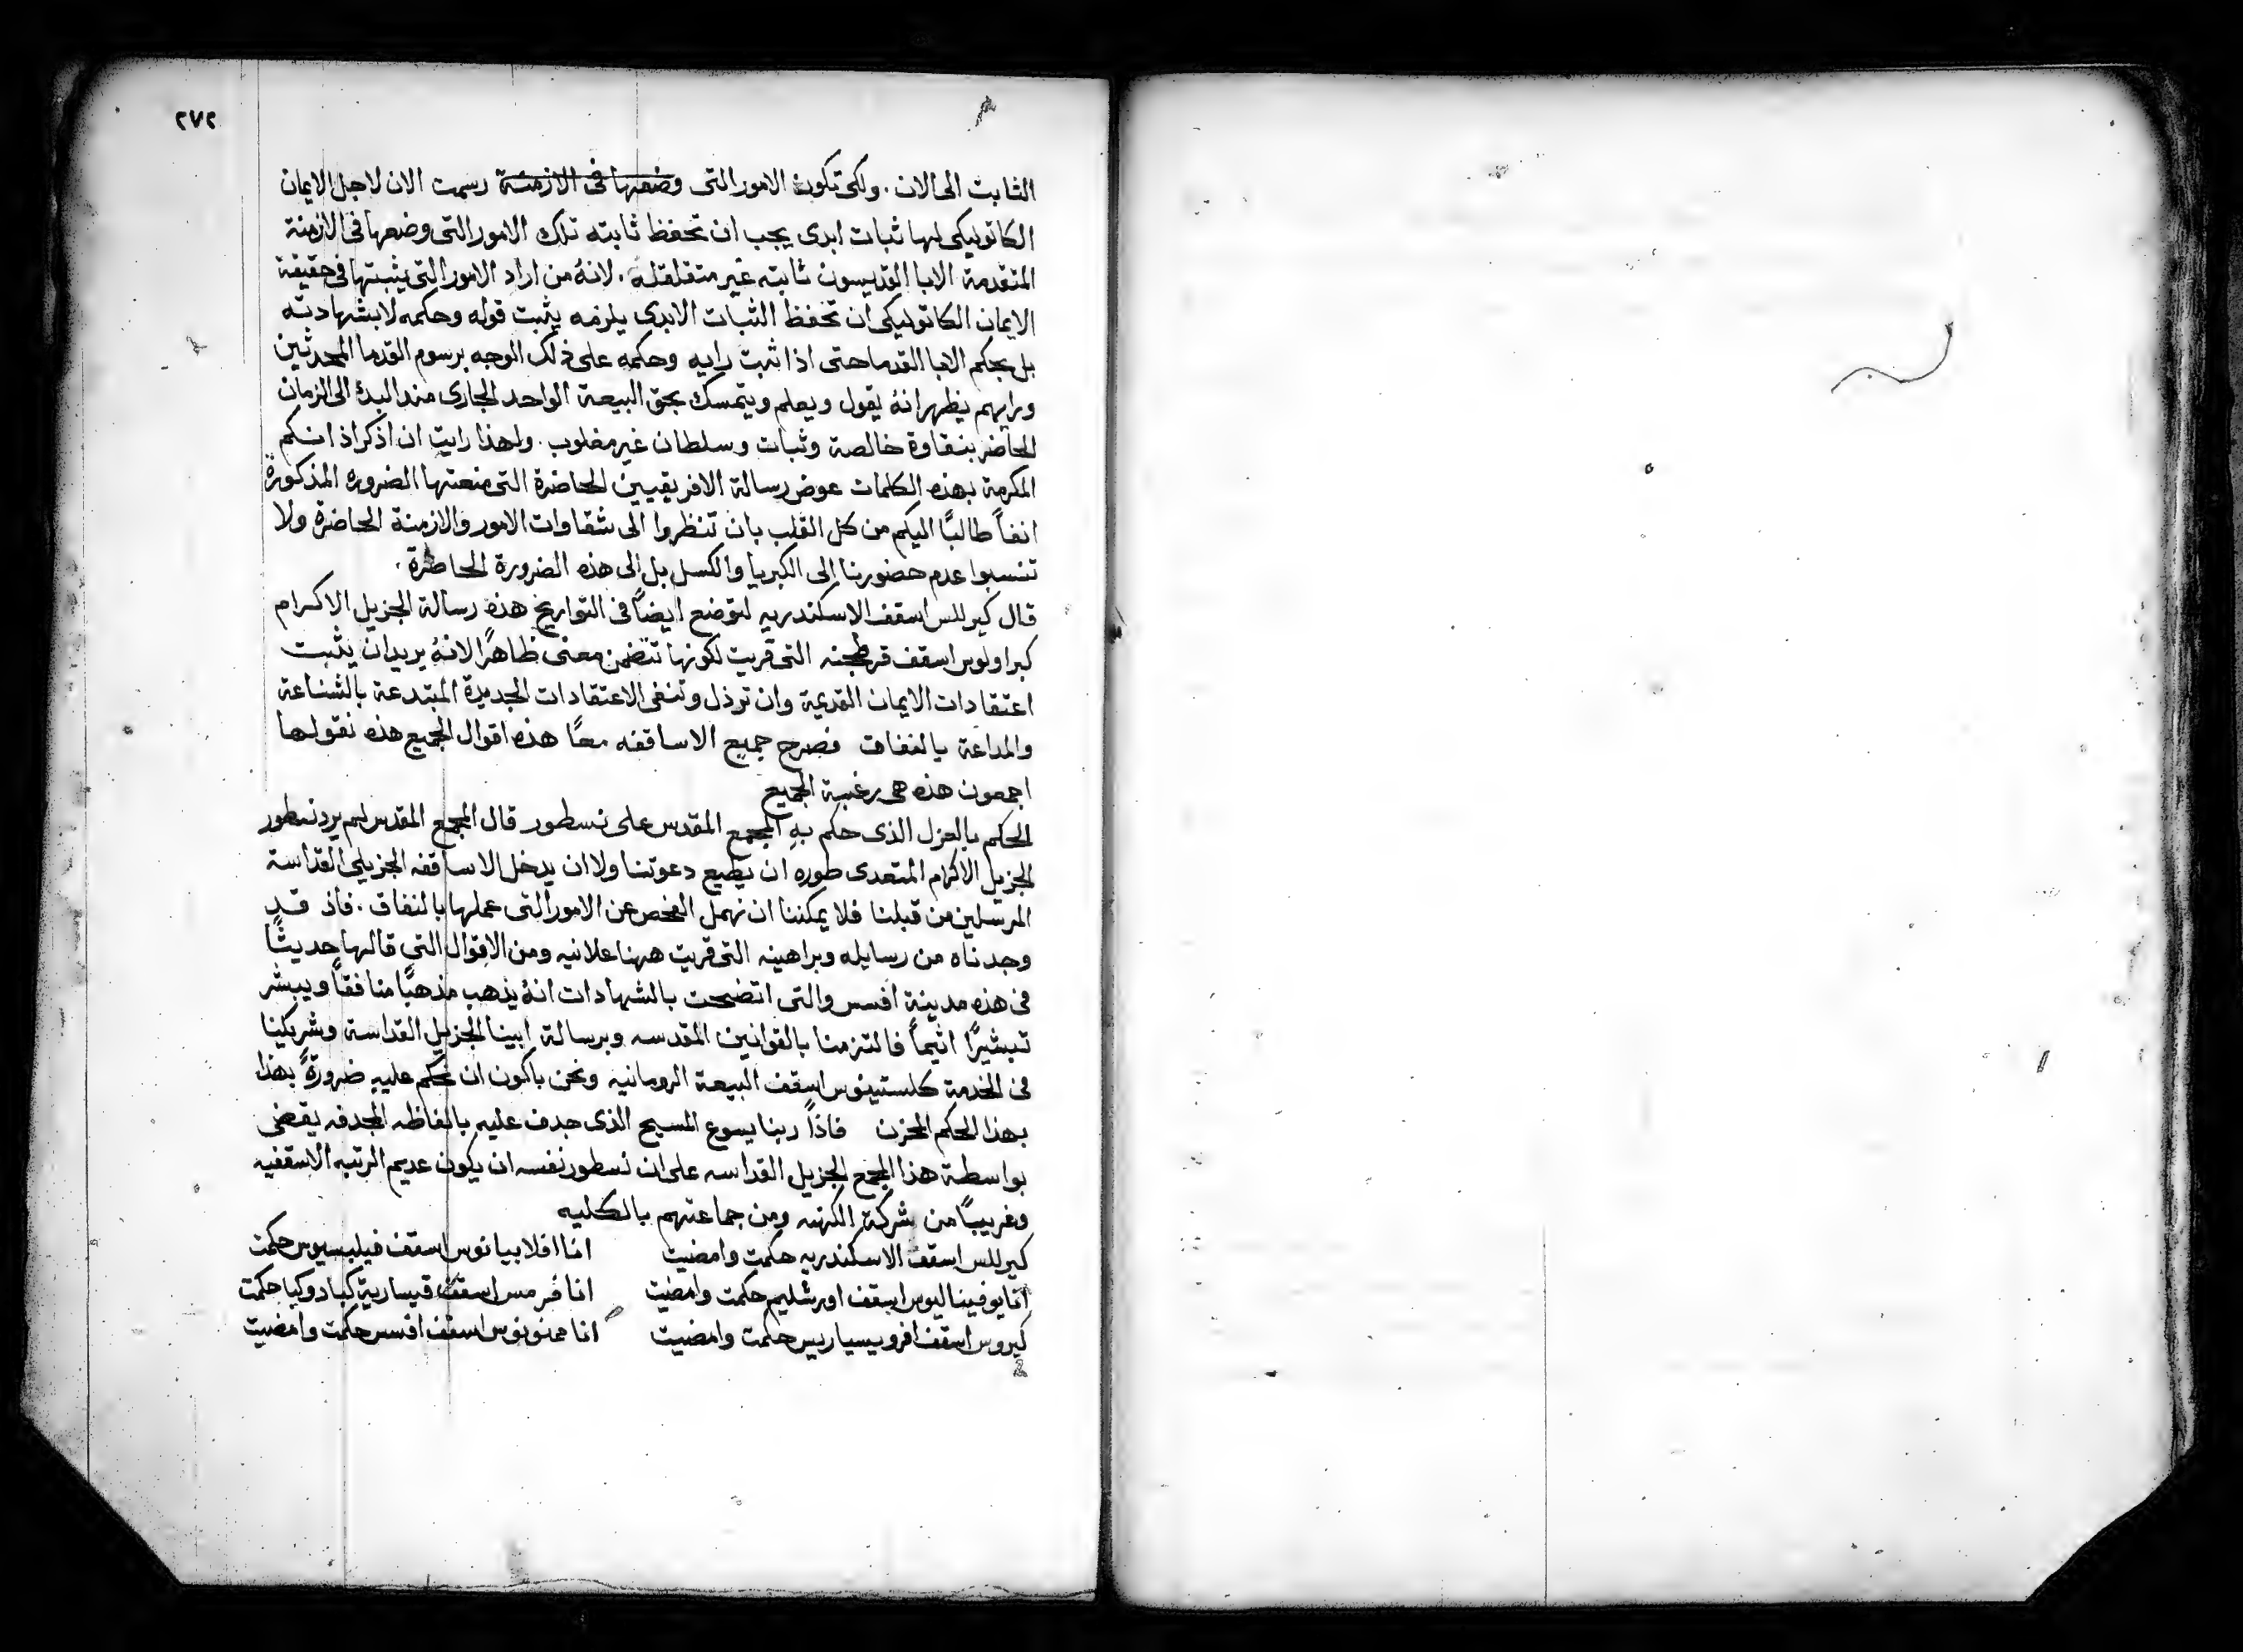 ٢٧٢
الثابت الى الان. ولكى تكون الامور التى وضعها فى الازمنة رسمت الان لاجل الايمان
الكاتوليكى لها ثبات ابدى يجب ان تحفظ ثابته تلك الامور التى وضعها فى الازمنة
المتقدمة الابا القديسون ثابته غير متقلقلة. لانهُ من اراد الامور التى يثبتها فى حقيقة
الايمان الكاتوليكى ان تحفظ الثبات الابدى يلزمه يثبت قوله وحكمه لابشهادته
بل بحكم الابا القدما حتى اذا ثبت رايه وحكمه على ذلك الوجه برسوم القدما المحدثين
ورايهم يظهر انهُ يقول ويعلم ويتمسك بحق البيعة الواحد الجارى منذ البدء الى الزمان
الحاضر بنقاوة خالصة وثبات وسلطان غير مغلوب. ولهذا رايت ان اذكر اذ انكم
المكرمة بهذه الكلمات عوض رسالة الافريقيين الحاضرة التى منعتها الضروره المذكورة
انفاً طالبًا اليكم من كل القلب بان تنظروا الى شقاوات الامور والازمنة الحاضرة ولا
تنسبوا عدم حضورنا الى الكبريا والكسل بل الى هذه الضرورة الحاضرة.
قال كيرللس اسقف الاسكندريه لتوضع ايضاً فى التواريخ هذه رسالة الجزيل الاكرام
كبراولوس اسقف قرطجنه التى قريت لكونها تتضمن معنى ظاهرًا لانهُ يريد ان يثبت
اعتقادات الايمان القديمة وان ترذل وتنفى الاعتقادات الجديدة المبتدعة بالشناعة
والمذاعة بالنفاق فصرح جميع الاساقفه معًا هذه اقوال الجميع هذه نقولها
اجمعون هذه هى رغبة الجميع
الحكم بالعزل الذى حكم بهِ المجمع المقدس على نسطور قال المجمع المقدس لم يرد نسطور
الجزيل الاكرام المتعدى طوره ان يطيع دعوتنا ولا ان يدخل الاساقفه الجزيلى القداسة
المرسلين من قبلنا فلا يمكننا ان نهمل الفحص عن الامور التى عملها بالنفاق. فاذ قد
وجدناه من رسايله وبراهينه التى قريت ههنا علانيه ومن الاقوال التى قالها حديثًا
فى هذه مدينة افسس والتى اتضحت بالشهادات انهُ يذهب مذهبًا منافقًا ويبشر
تبشيرًا اثيماً فالتزمنا بالقوانين المقدسه وبرسالة ابينا الجزيل القداسة وشريكنا
فى الخدمة كلستينوس اسقف البيعة الرومانيه ونحن باكون ان نحكم عليهِ ضرورةً بهذا
بهذا الحكم المحزن فاذًا ربنا يسوع المسيح الذى جدف عليهِ بالفاظه المجدفه يقضى
بواسطة هذا المجمع الجزيل القداسه على ان نسطور نفسه ان يكون عديم الرتبه الاسقفيه
وغريبًا من شركة الكهنه ومن جماعتهم بالكليه
كيرللس اسقف الاسكندريه حكمت وامضيت انا افلابيانوس اسقف فيلبسيوس حكمت
انا يوفيناليوس اسقف اورشليم حكمت وامضيت انا فرمس اسقف قيسارية كبادوكيا حكمت
كيروس اسقف افروبيسياريس حكمت وامضيت انا ممنونوس اسقف افسس حكمت وامضيت